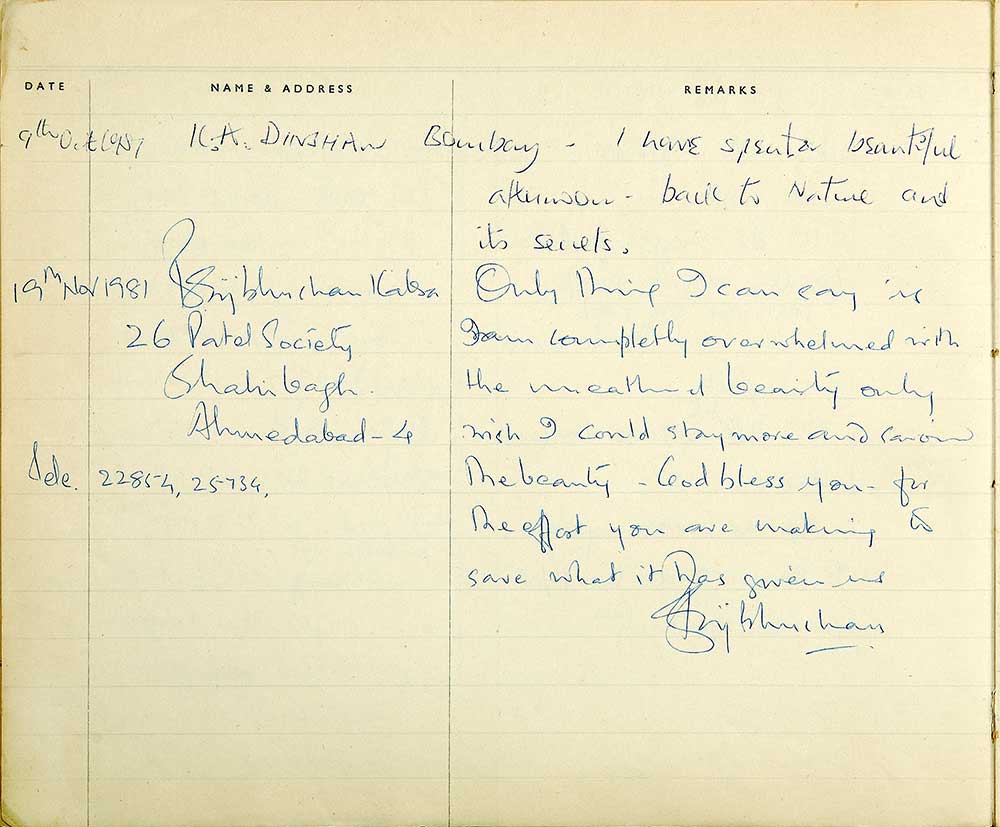 DATE NAME & ADDRESS REMARKS
9th Oct 1981 K.A. DINSHAW Bombay - I have spent a beautiful
afternoon - back to Nature and
its secrets.
19th Nov 1981 Brijbhushan Kabra Only thing I can say is
26 Patel Society I am completly overwhelmed with
Shahibagh. the beauty only
Ahmedabad-4 wish I could stay more and
Tele. 22854, 25734, The beauty - God bless you - for
The effort you are making to
save what it has given us
Brijbhushan